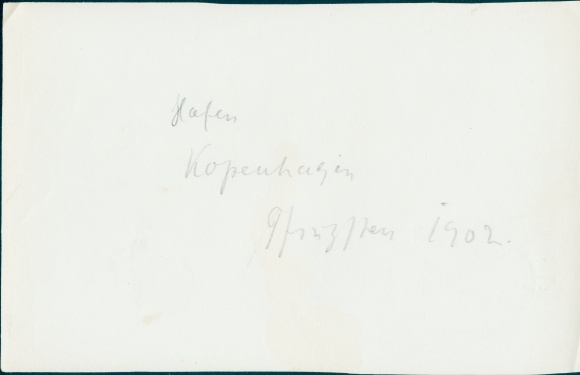 Hafen
Kopenhagen
Pfingsten 1902.